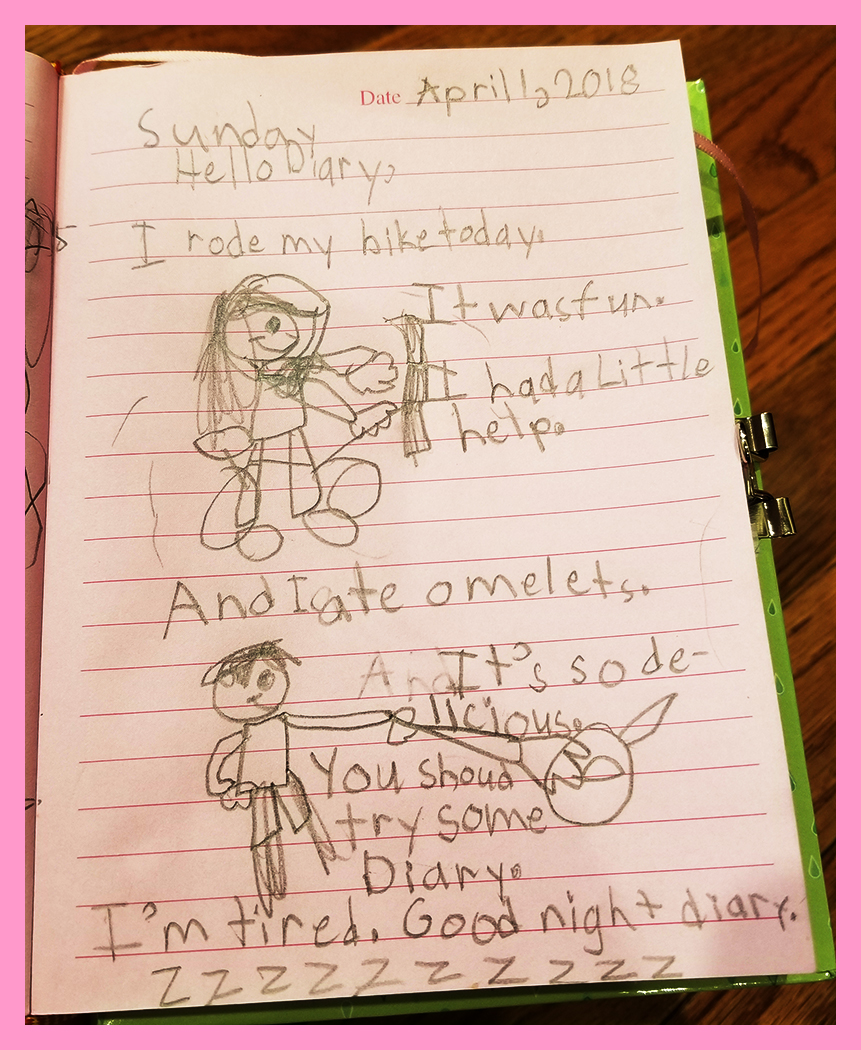 Date April 1, 2018
Sunday
Hello Diary,
I rode my bike today.
It was fun.
I had a Little
help.
And I ate omelets.
And It's so de-
elicious.
You shoud
try some
Diary.
I'm tired. Good night diary.
z z z z z z z z z z z